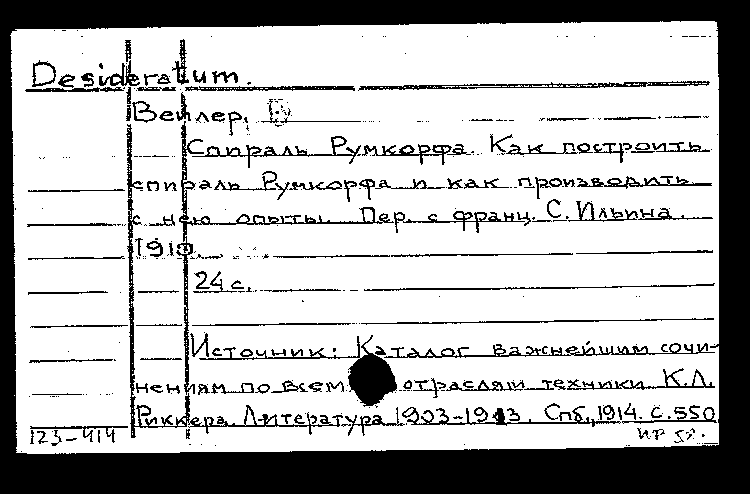 Desideratum.
Вейлер, В
Спираль Румкорфа. Как построить
спираль Румкорфа и как производить
с нею опыты. Пер. с франц. С. Ильина.
1910.
24 с.
Источник: Каталог важнейшим сочи-
нениям по всем отраслям техники К.Л.
Риккера. Литература 1903-1913. Спб., 1914. с. 550
123-414